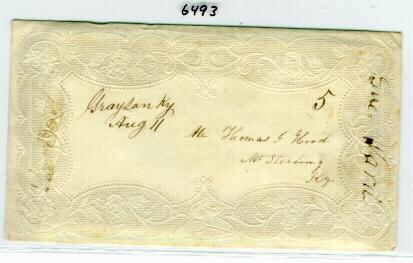 6493
Grayson Ky
Aug 11
5
Mr Thomas F Hood
Mt Sterling
Ky